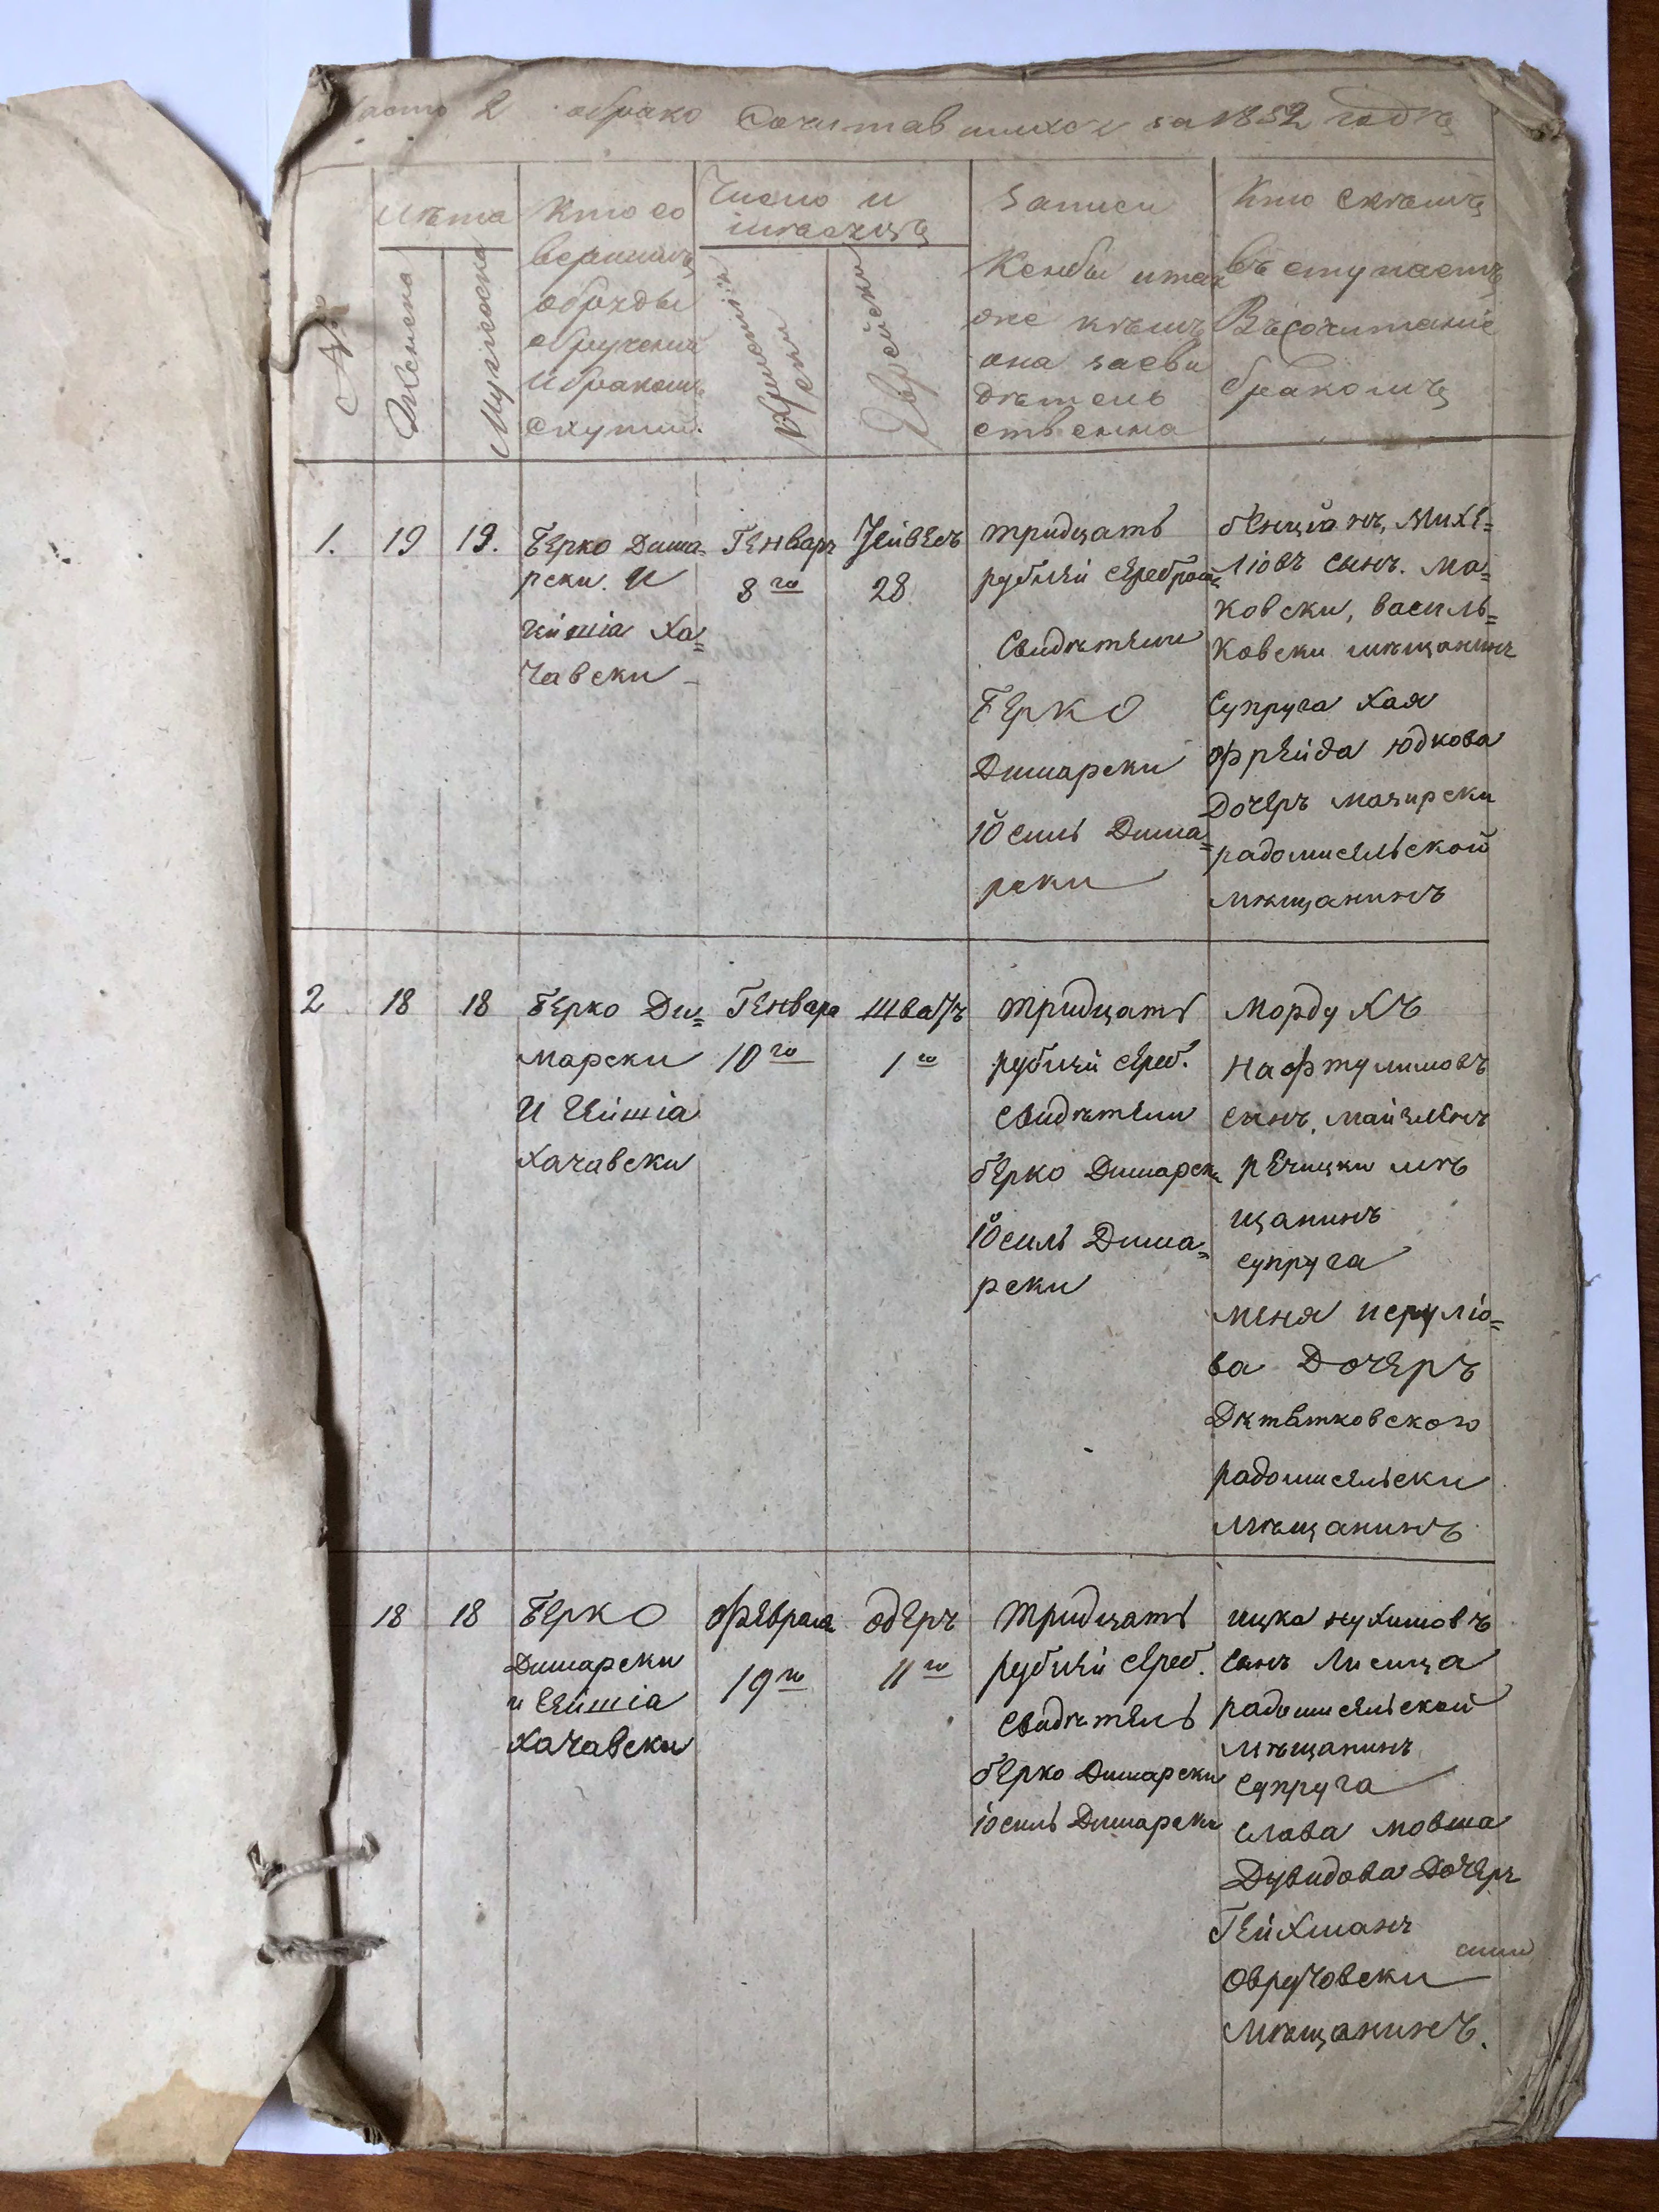 Часть 2 о брако сочитавшихся за 1852 годъ
№
Лѣта
Женска
Мужеска
Кто со
вершалъ
обряды
обрученія
и бракомъ
Число и
мѣсяцъ
Христіан
ски
Еврейски
Записи
или
она засви
дѣтель
ствена
Кто с кемъ
въступаетъ
Въ сочитаніе
бракомъ
1.
19
19.
Берко Дима=
рски. И
Хо=
чавски
Генваръ
8го
Тейвесъ
28
тридцать
рублей серебромъ
Свидѣтели
Берко
Димарски
Іосиль Дима=
рски
бенціонъ, Михе=
ліовъ сынъ. Ма=
ковски, василь=
ковски мѣщанинъ
Супруга Хая
фрейда юдкова
Дочеръ мазирски
радомисельской
мѣщанинъ
2
18
18
Берко Ди=
марски
И
Хачавски
Генвара
10го
Шватъ
1го
тридцать
рублей сереб.
свидѣтели
берко Димарски
Іосиль Дима=
рски
Мордухъ
Нафтулимовъ
синъ.
речицки мѣ
щанинъ
супруга
меня
ва Дочеръ
Дѣтятковского
радомисельски
мѣщанинъ
18
18
Берко
Димарски
и
Хачавски
февраля
19го
Одеръ
11го
тридцать
рублей сереб.
Свидѣтель
берко Димарски
іосиль Димарски
ицка нухимовъ
синъ Лисица
радомисельской
мѣщанинъ
Супруга
слава мовша
Дувидова Дочеръ
Гейхманъ
овручовски
мѣщанинъ.